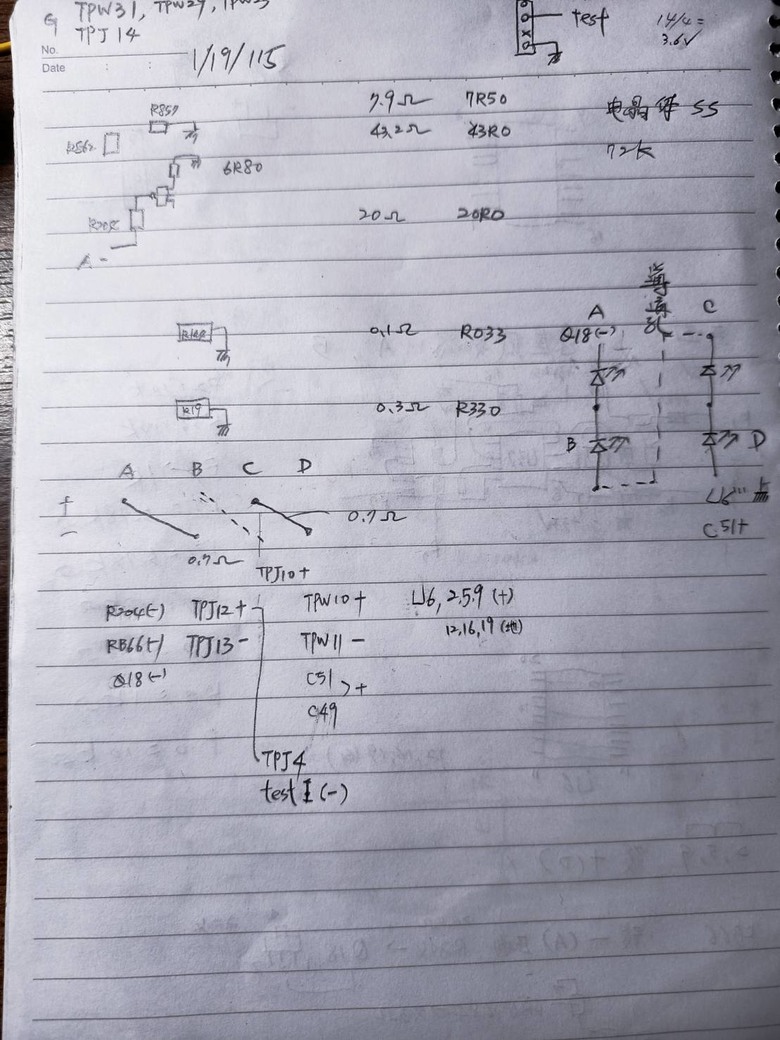 G TPW31, TPW29, TPW25
TPJ14
test
14/4=
3.6V
No.
Date : :
1/19/115
R857
7.9Ω 7R50
电晶体 SS
43.2Ω 43R0
72K
6R80
20Ω 20R0
A-
导通孔
A C
0.1Ω R033 Q18(-)
R19 0.3Ω R330
B D
A B C D
+
-
0.7Ω
0.7Ω
U6
C51+
TPJ10+
R204(-) TPJ12+ TPW10+ U6, 2.5.9 (+)
RB66(-) TPJ13- TPW11- 12,16,19 (地)
Q18(-) C51 >+
C49
TPJ4
test I (-)